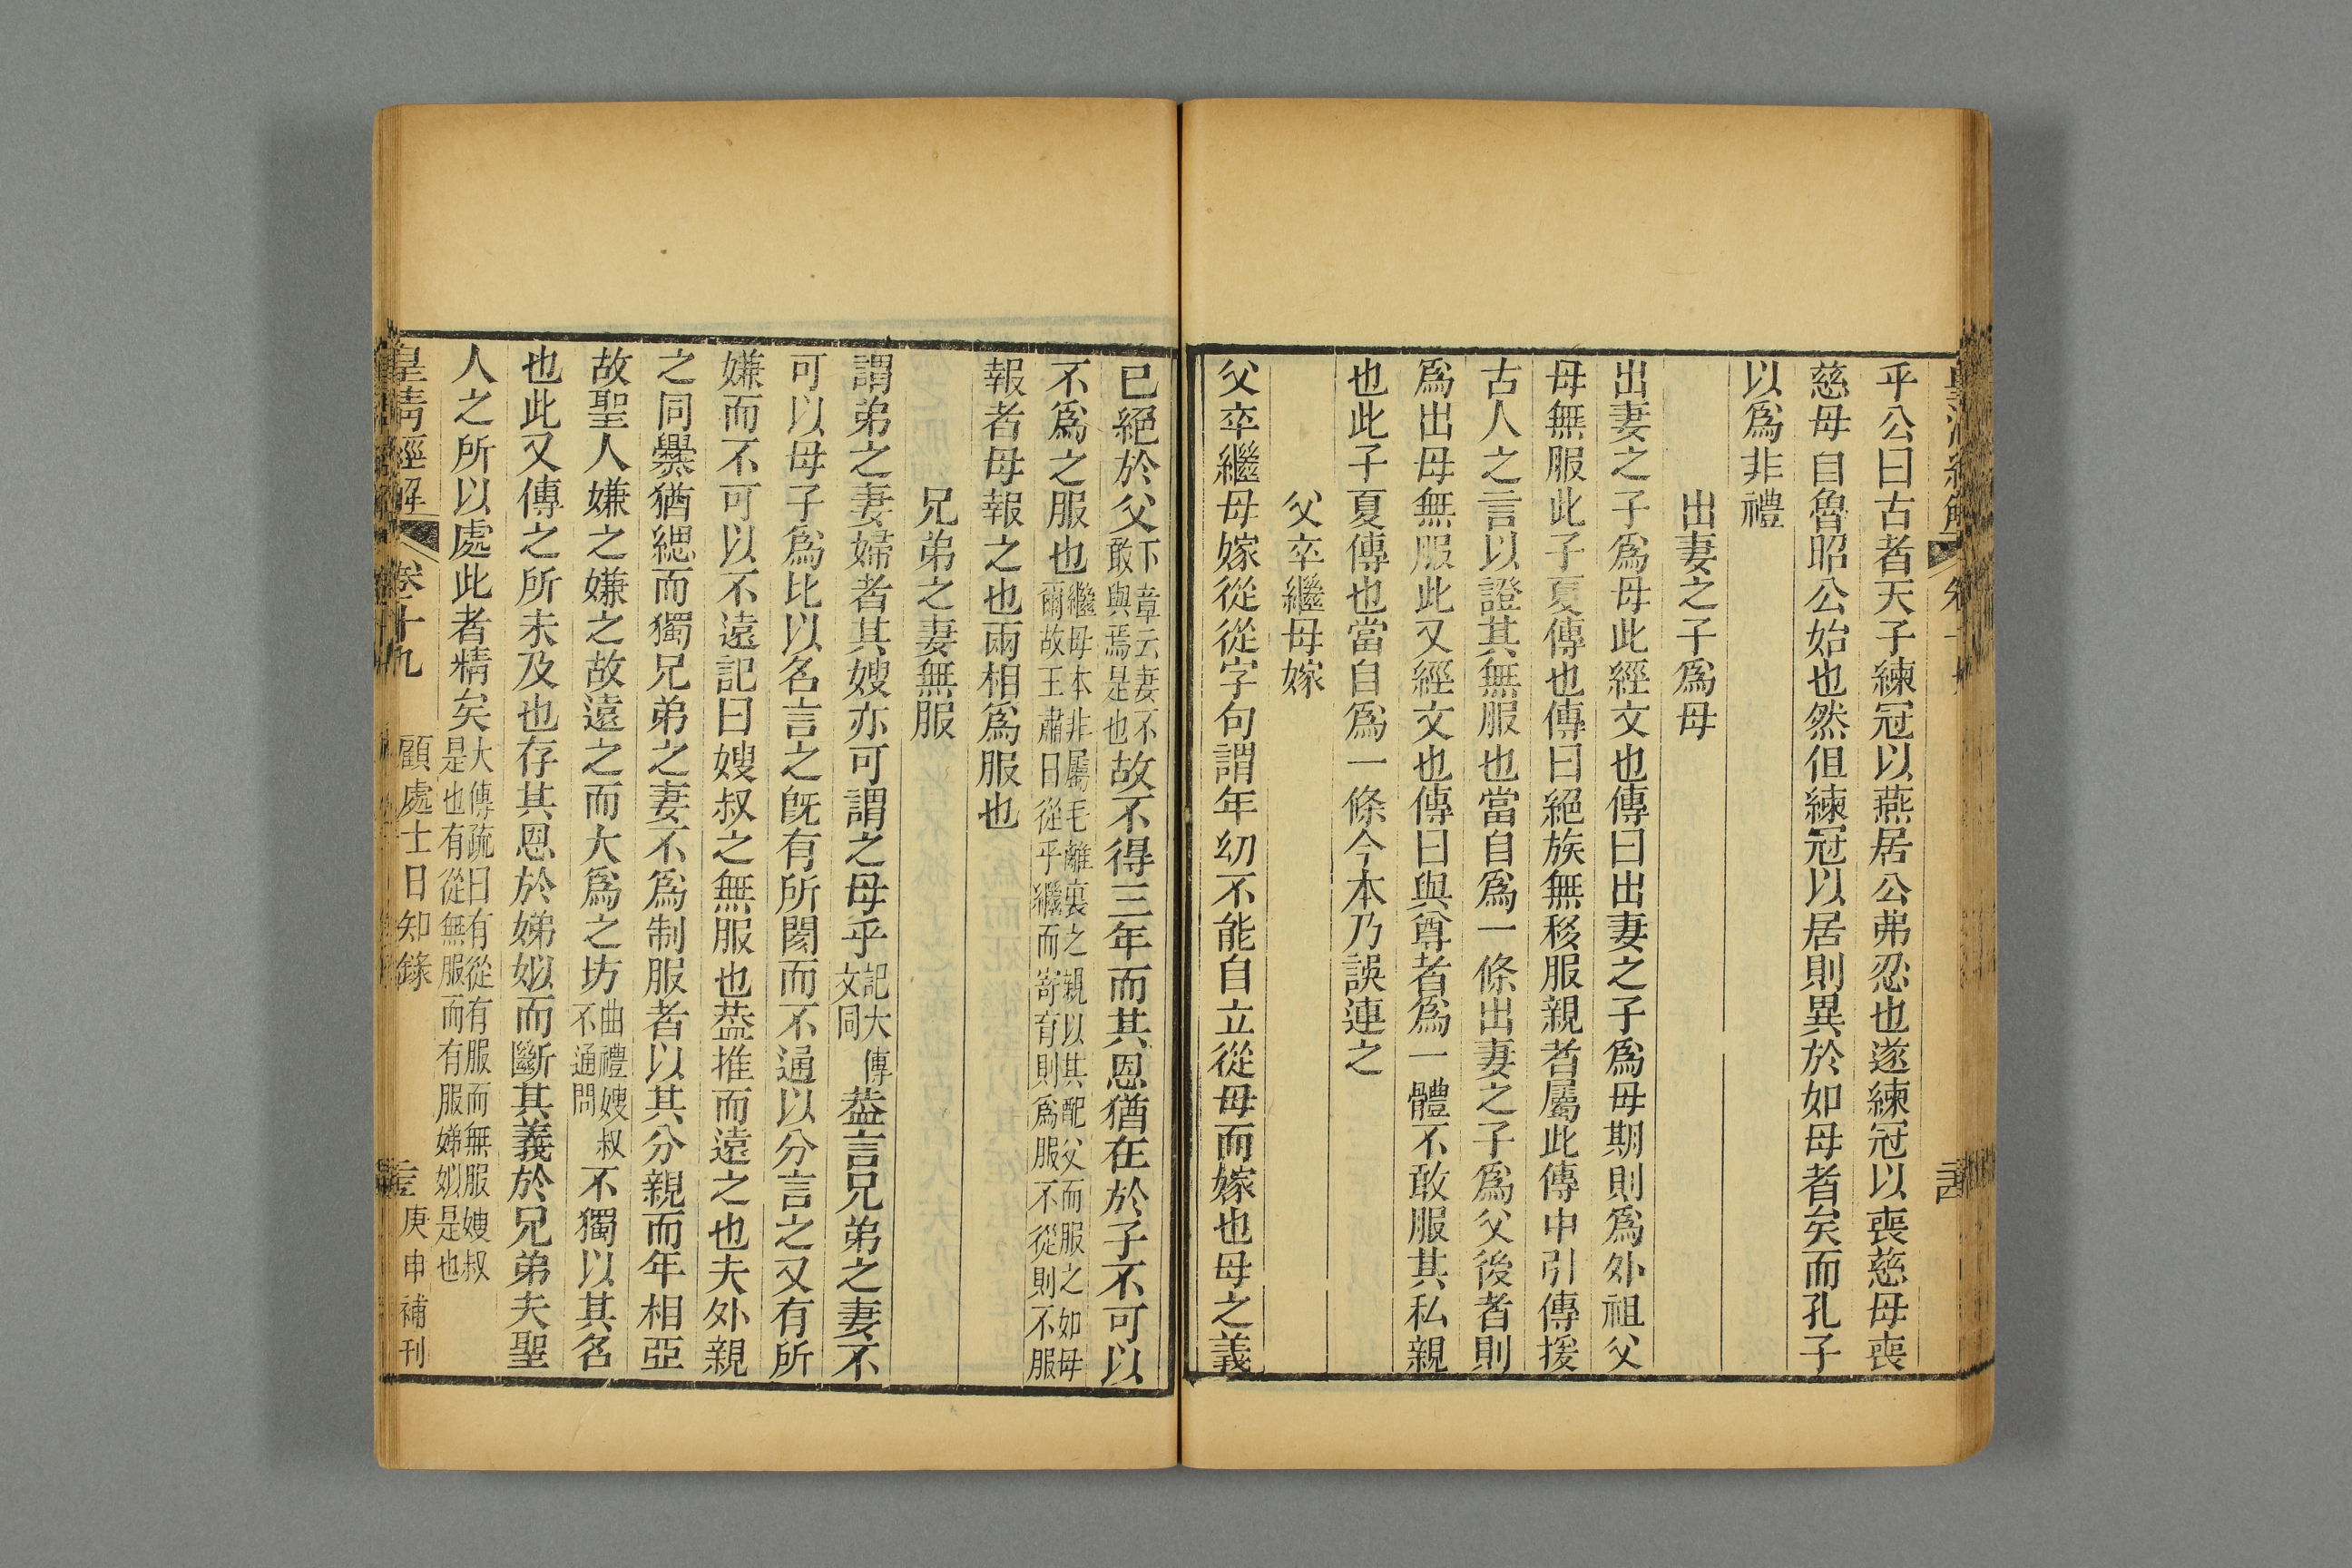 乎公曰古者天子練冠以燕居公弗忍也遂練冠以喪慈母喪
慈母自魯昭公始也然但練冠以居則異於如母者矣而孔子
以爲非禮
出妻之子爲母
出妻之子爲母此經文也傳曰出妻之子爲母期則爲外祖父
母無服此子夏傳也傳曰絕族無移服親者屬此傳中引傳援
古人之言以證其無服也當自爲一條出妻之子爲父後者則
爲出母無服此又經文也傳曰與尊者爲一體不敢服其私親
也此子夏傳也當自爲一條今本乃誤連之
父卒繼母嫁
父卒繼母嫁從從字句謂年幼不能自立從母而嫁也母之義
已絕於父下章云妻不敢與焉是也故不得三年而其恩猶在於子不可以
不爲之服也繼母本非屬毛離裏之親以其配父而服之如母爾故王肅曰從乎繼而寄育則爲服不從則不服
報者母報之也兩相爲服也
兄弟之妻無服
謂弟之妻婦者其嫂亦可謂之母乎記大傳文同葢言兄弟之妻不
可以母子爲比以名言之旣有所閡而不通以分言之又有所
嫌而不可以不遠記曰嫂叔之無服也葢推而遠之也夫外親
之同爨猶緦而獨兄弟之妻不爲制服者以其分親而年相亞
故聖人嫌之嫌之故遠之而大爲之坊曲禮嫂叔不通問不獨以其名
也此又傳之所未及也存其恩於娣姒而斷其義於兄弟夫聖
人之所以處此者精矣大傳疏曰有從有服而無服嫂叔是也有從無服而有服娣姒是也
皇清經解 卷十九 顧處士日知錄 庚申補刊